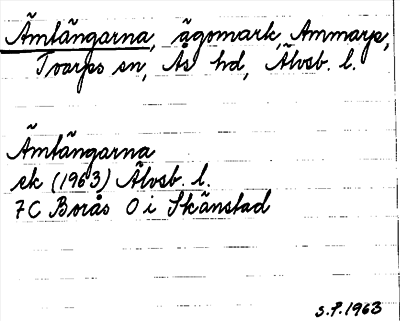 Ämtängarna, ägomark, Ammarp,
Tvarps sn, Ås hd, Älvsb. l.
Ämtängarna
ek (1963) Älvsb. l.
7C Borås 0 i Skänstad
S.P. 1963